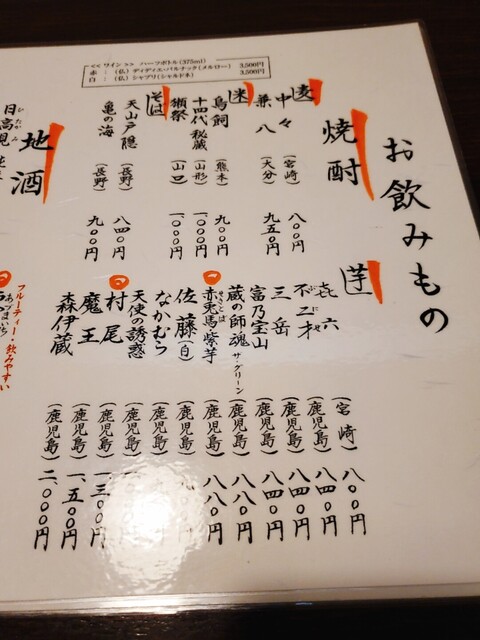 <<ワイン>> ハーフボトル(375ml)
赤:(仏)ディディエ・パルナック(メルロー) 3,500円
白:(仏)シャブリ(シャルドネ) 3,500円
お飲みもの
焼酎
麦
中々 (宮崎) 八〇〇円
兼八 (大分) 九五〇円
米
鳥飼 (熊本) 九〇〇円
十四代秘蔵 (山形) 一〇〇〇円
獺祭 (山口) 一〇〇〇円
そば
天山戸隠 (長野) 八四〇円
亀の海 (長野) 九〇〇円
芋
㐂六 (宮崎) 八〇〇円
不二才 (鹿児島) 八四〇円
三岳 (鹿児島) 八四〇円
富乃宝山 (鹿児島) 八四〇円
蔵の師魂 ザ・グリーン (鹿児島) 八八〇円
赤兎馬・紫芋 (鹿児島) 八八〇円
佐藤(白) (鹿児島)
なかむら (鹿児島)
天使の誘惑 (鹿児島)
村尾 (鹿児島) 一三〇〇円
魔王 (鹿児島) 一、五〇〇円
森伊蔵 (鹿児島) 二、〇〇〇円
地酒
日高見
フルーティー・飲みやすい